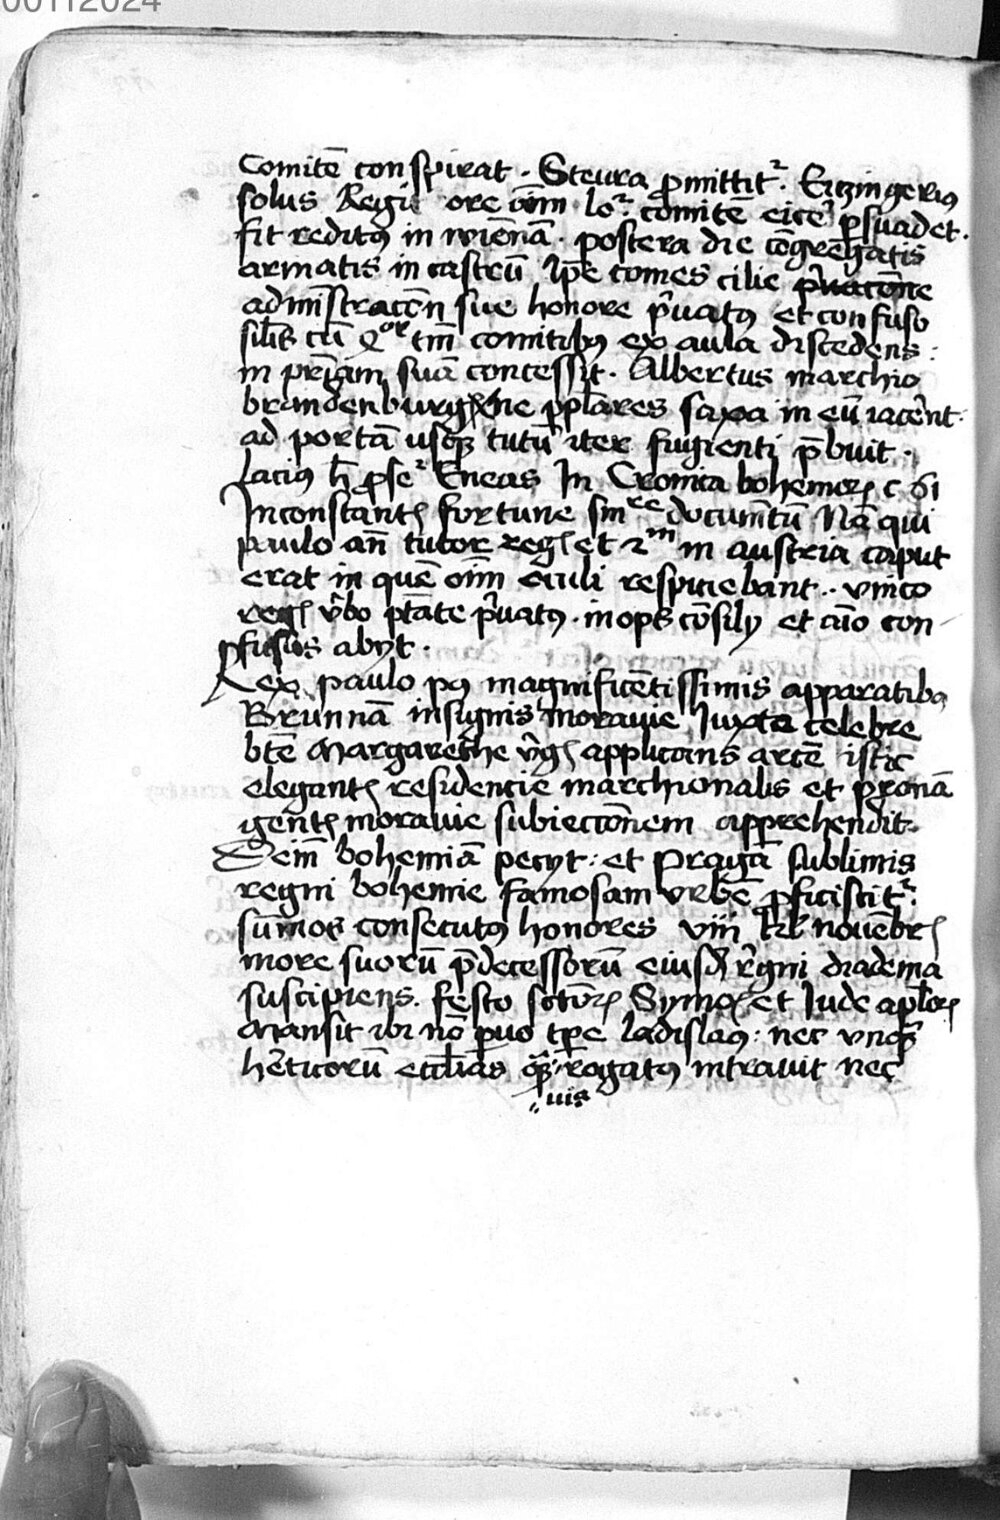 00112024
Comitē conspirat · Steura ꝓmittitᷣ · Eitzingerius
solus Regiͥ ore oīm loᷣ · comitē eiceᷣ ꝑsuadet ·
fit reditꝰ in wiēnā · postera die cōgregatis
armatis in castrū Ipē comes cilie
admīstracōn sue honore pͥuatꝰ et confuso
silis cū qᵒʳ tm̄ comitibꝰ ex aula discedens :
in priam suā concessit · Albertus marchio
brandenburgēn ne ppl̄ares saxa in eū iacēnt ·
ad portā usqꝫ tutū iter fugienti p̄buit ·
laciꝰ h̄ ꝓseᷣ Eneas In Cronica bohemoꝝ c 61
Inconstantꝭ fortune sm̄ʳᵉ documētū Nā qui
paulo an̄ tutor regꝭ et 2ᵐ in austria caput
erat in quē oīm oculi respiciebant ·· vnico
regꝭ v̓bo ptāte pͥuatꝰ · inops cōsilij et cū̄o con
fusus abijt ·
Rex paulo pꝰ magnificētissimis apparatibꝰ
Brunnā insignis morauie Iuxta celebre
btē Margarethe v̓gꝭ applicans arcē istic
elegantꝭ residencie marchionalis et pronā
gentꝭ morauie subiectōnem apprehendit ·
Deiñ bohemiā pecyt : et Pragā sublimis
regni bohemie famosam vrbē ꝓficiscitᷣ ·
sūmos consecutꝰ honores viii kl̄ nouēbrꝭ
more suorū p̄decessorū eiusd̄ regni diadema
suscipiens · festo sctōrꝝ Symoꝭ et Iude apl̄oꝝ
Mansit ibi nō ꝑuo tp̄e ladislaꝰ : nec vnqꝫ
hēticorū eccl̄ias qꝫ · rogatꝰ intrauit nec
·· uis